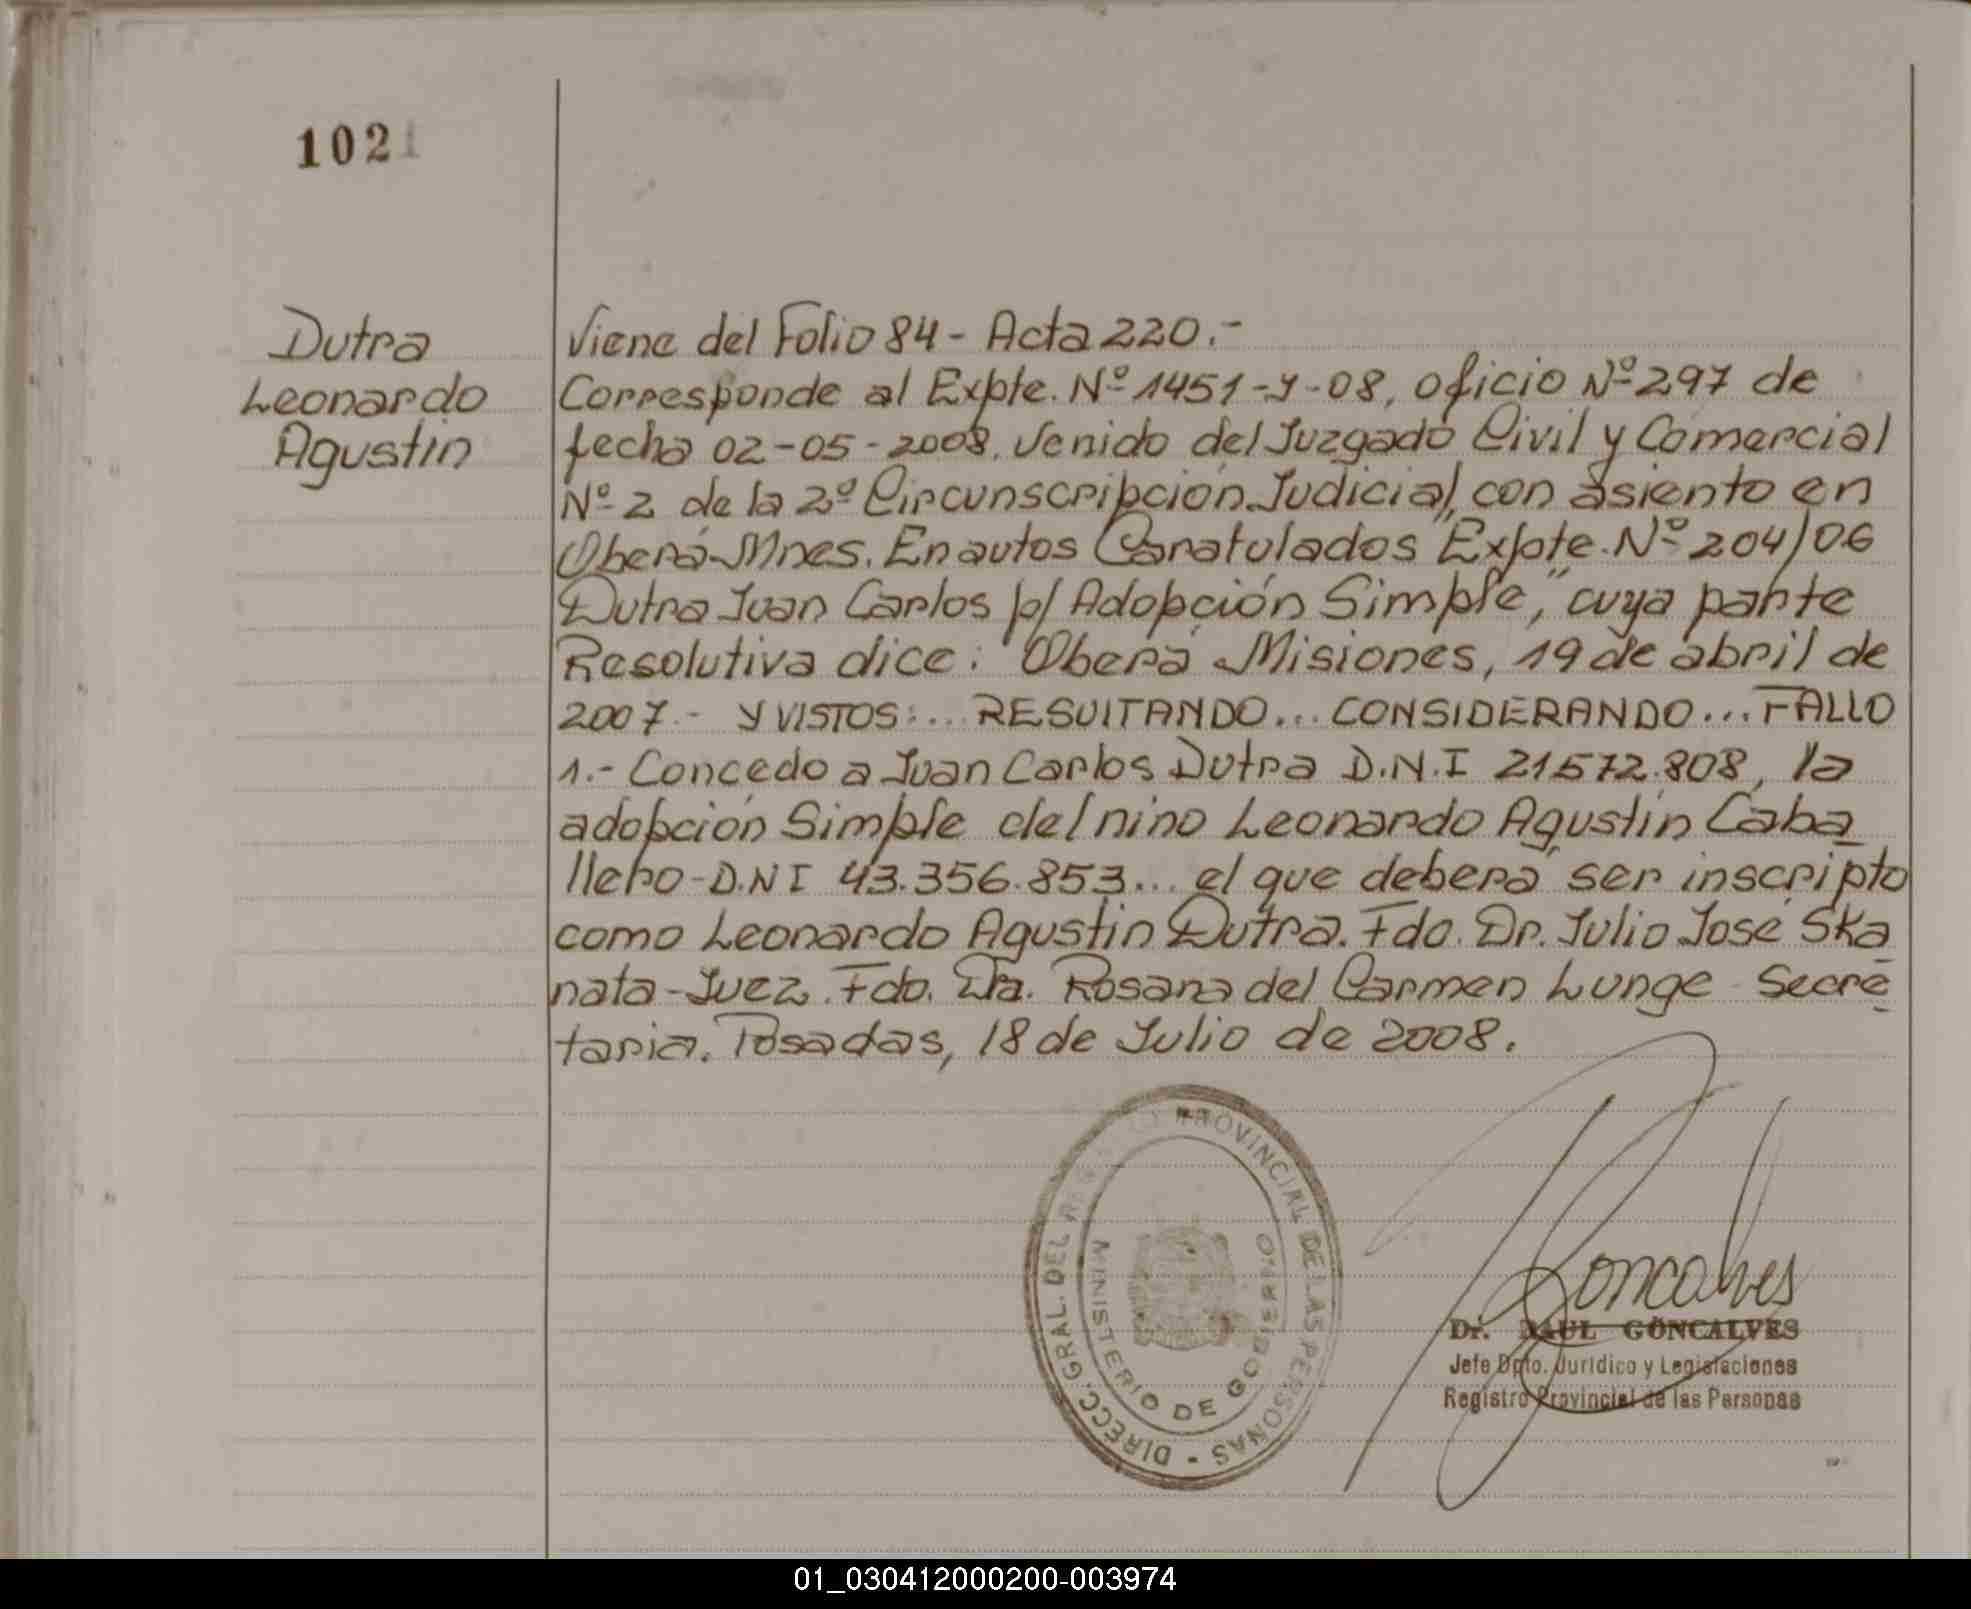 1021
Dutra
Leonardo
Agustin
Viene del Folio 84 - Acta 220.-
Corresponde al Expte. Nº 1451-Y-08, oficio Nº 297 de
fecha 02-05-2008. Venido del Juzgado Civil y Comercial
Nº 2 de la 2º Circunscripción Judicial, con asiento en
Oberá-Mnes. En autos Caratulados "Expte. Nº 204/06
Dutra Juan Carlos p/ Adopción Simple," cuya parte
Resolutiva dice: Oberá Misiones, 19 de abril de
2007.- Y VISTOS:... RESULTANDO... CONSIDERANDO... FALLO
1.- Concedo a Juan Carlos Dutra D.N.I 21.572.808, la
adopción Simple del nino Leonardo Agustin Caba
llero-D.N I 43.356.853... el que deberá ser inscripto
como Leonardo Agustin Dutra. Fdo. Dr. Julio José Ska
nata-Juez. Fdo. Dra. Rosana del Carmen Lunge - Secre
taria. Posadas, 18 de Julio de 2008.
DIRECC. GRAL. DEL PROVINCIAL DE LAS PERSONAS -
MINISTERIO DE GOBIERNO
Goncalves
Dr. RAUL GONCALVES
Jefe Dpto. Jurídico y Legislaciones
Registro Provincial de las Personas
01_030412000200-003974